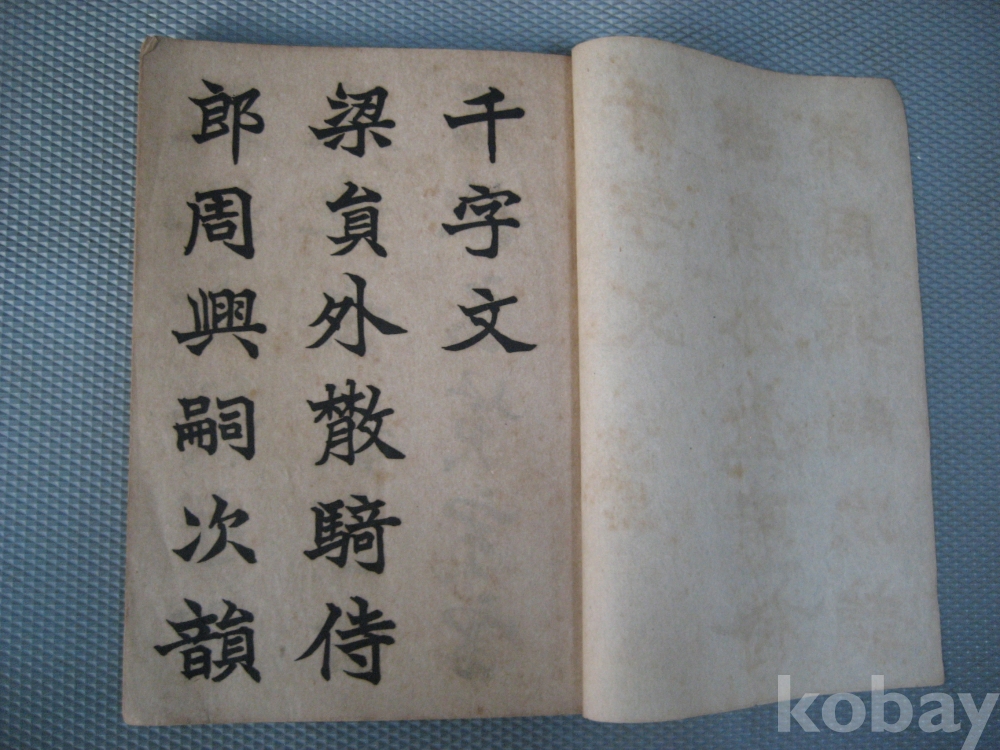 千字文
梁員外散騎侍
郎周興嗣次韻
kobay